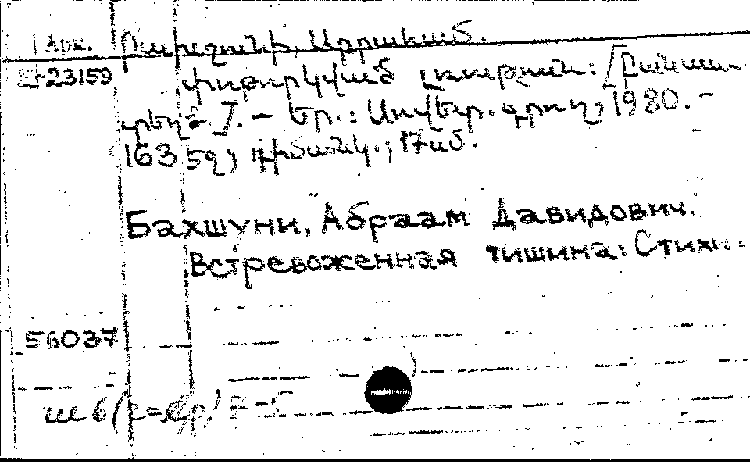 Արմ.
Բախշունի, Աբրահամ.
23159
Փոթորկված լռություն: [Բանաս-
տեղծ.]. – Եր.: Սովետ. գրող, 1980. –
163 էջ, դիմանկ.; 17սմ.
Бахшуни, Абраам Давидович.
Встревоженная тишина: Стихи..
56037